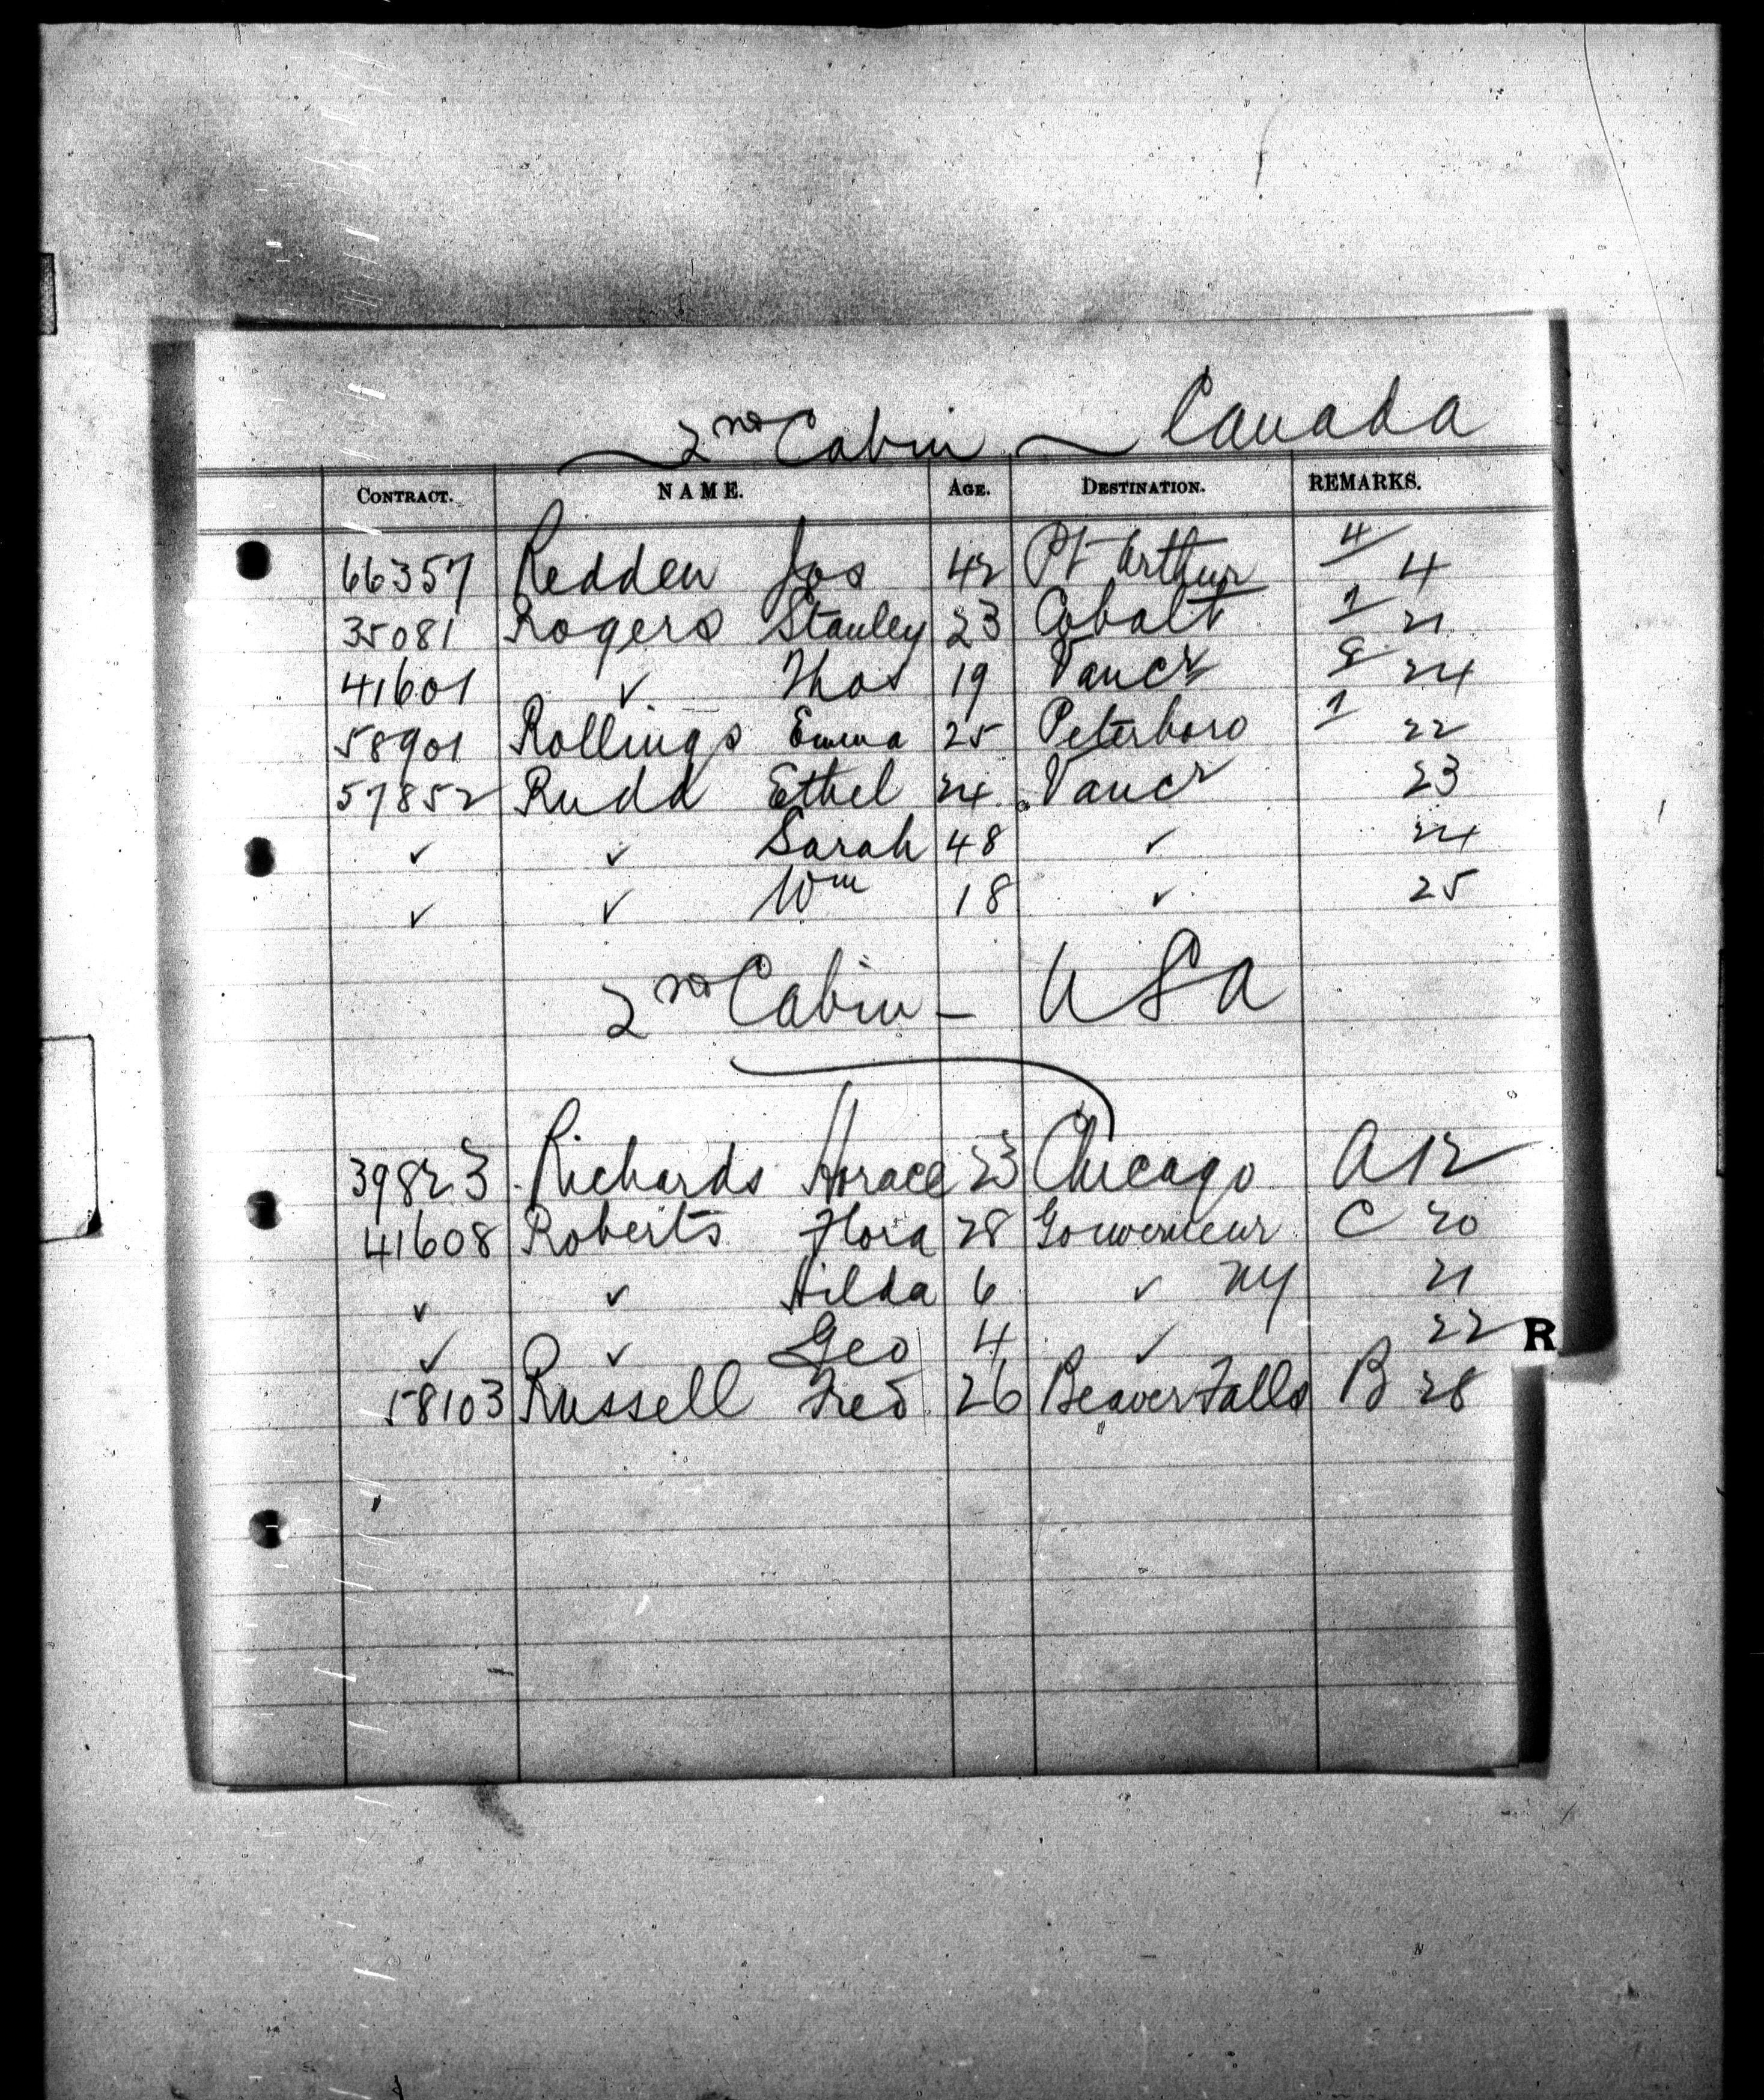 2nd Cabin Canada
CONTRACT. NAME. AGE. DESTINATION. REMARKS.
66357 Redden Jos 42 Pt Arthur 4 4
35081 Rogers Stanley 23 Cobalt 1 21
41601 ✓ Thos 19 Vancr 8 24
58901 Rollings Emma 25 Peterboro 1 22
57852 Rudd Ethel 24 Vancr 23
✓ ✓ Sarah 48 ✓ 24
✓ ✓ Wm 18 ✓ 25
2nd Cabin - USA
39823 Richards Horace 23 Chicago A 12
41608 Roberts Flora 28 Gouverneur C 20
✓ ✓ Hilda 6 ✓ NY 21
✓ ✓ Geo 4 ✓ 22
R
58103 Russell Fred 26 Beaver Falls B 28